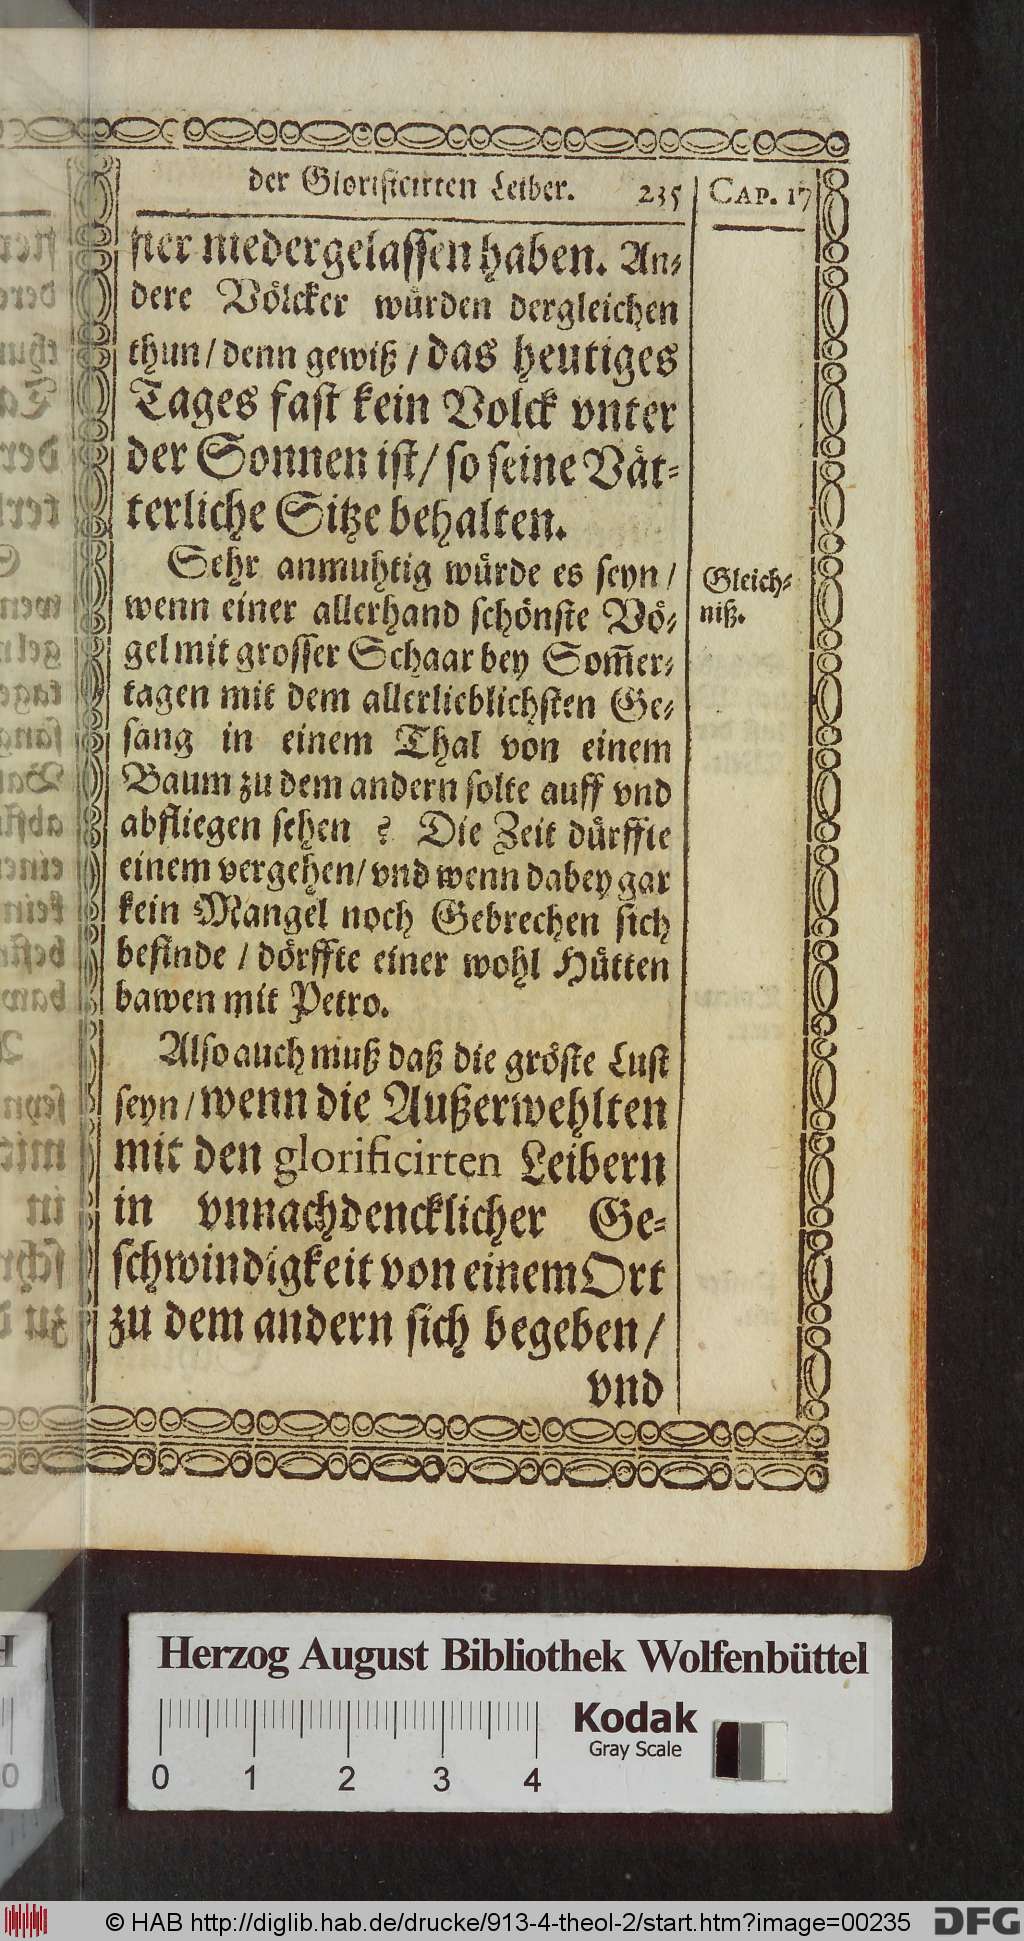 der Glorificirten Leiber. 235 CAP. 17
ster niedergelassen haben. An-
dere Völcker würden dergleichen
thun / denn gewiß / das heutiges
Tages fast kein Volck vnter
der Sonnen ist / so seine Vät-
terliche Sitze behalten.
Sehr anmuhtig würde es seyn /
Gleich-
niß.
wenn einer allerhand schönste Vö-
gel mit grosser Schaar bey Som̃er-
tagen mit dem allerlieblichsten Ge-
sang in einem Thal von einem
Baum zu dem andern solte auff vnd
abfliegen sehen ? Die Zeit dürffte
einem vergehen / vnd wenn dabey gar
kein Mangel noch Gebrechen sich
befinde / dörffte einer wohl Hütten
bawen mit Petro.
Also auch muß daß die gröste Lust
seyn / wenn die Außerwehlten
mit den glorificirten Leibern
in vnnachdencklicher Ge-
schwindigkeit von einem Ort
zu dem andern sich begeben /
vnd
Herzog August Bibliothek Wolfenbüttel
Kodak
Gray Scale
0 1 2 3 4
© HAB http://diglib.hab.de/drucke/913-4-theol-2/start.htm?image=00235 DFG